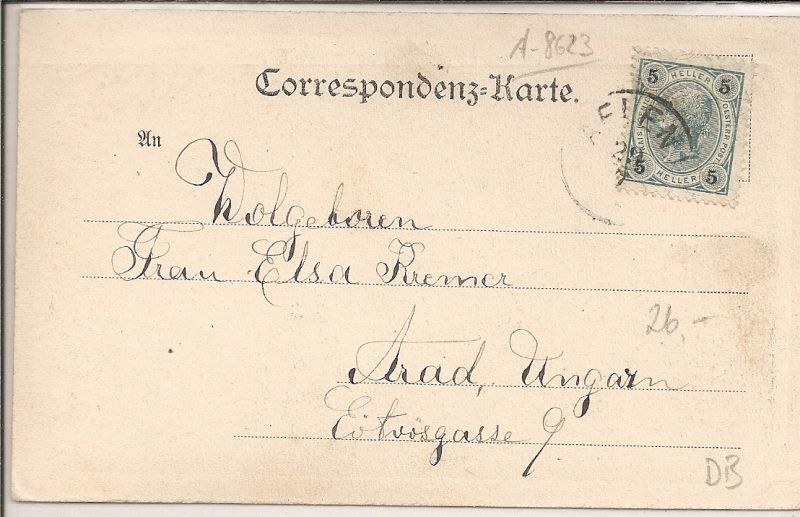 A-8623
Correspondenz=Karte.
5 HELLER 5
OESTERR. POST
5 HELLER 5
AFLENZ
An
Wolgeboren
Frau Elsa Kremer
26,-
Arad, Ungarn
Eötvösgasse 9
DB